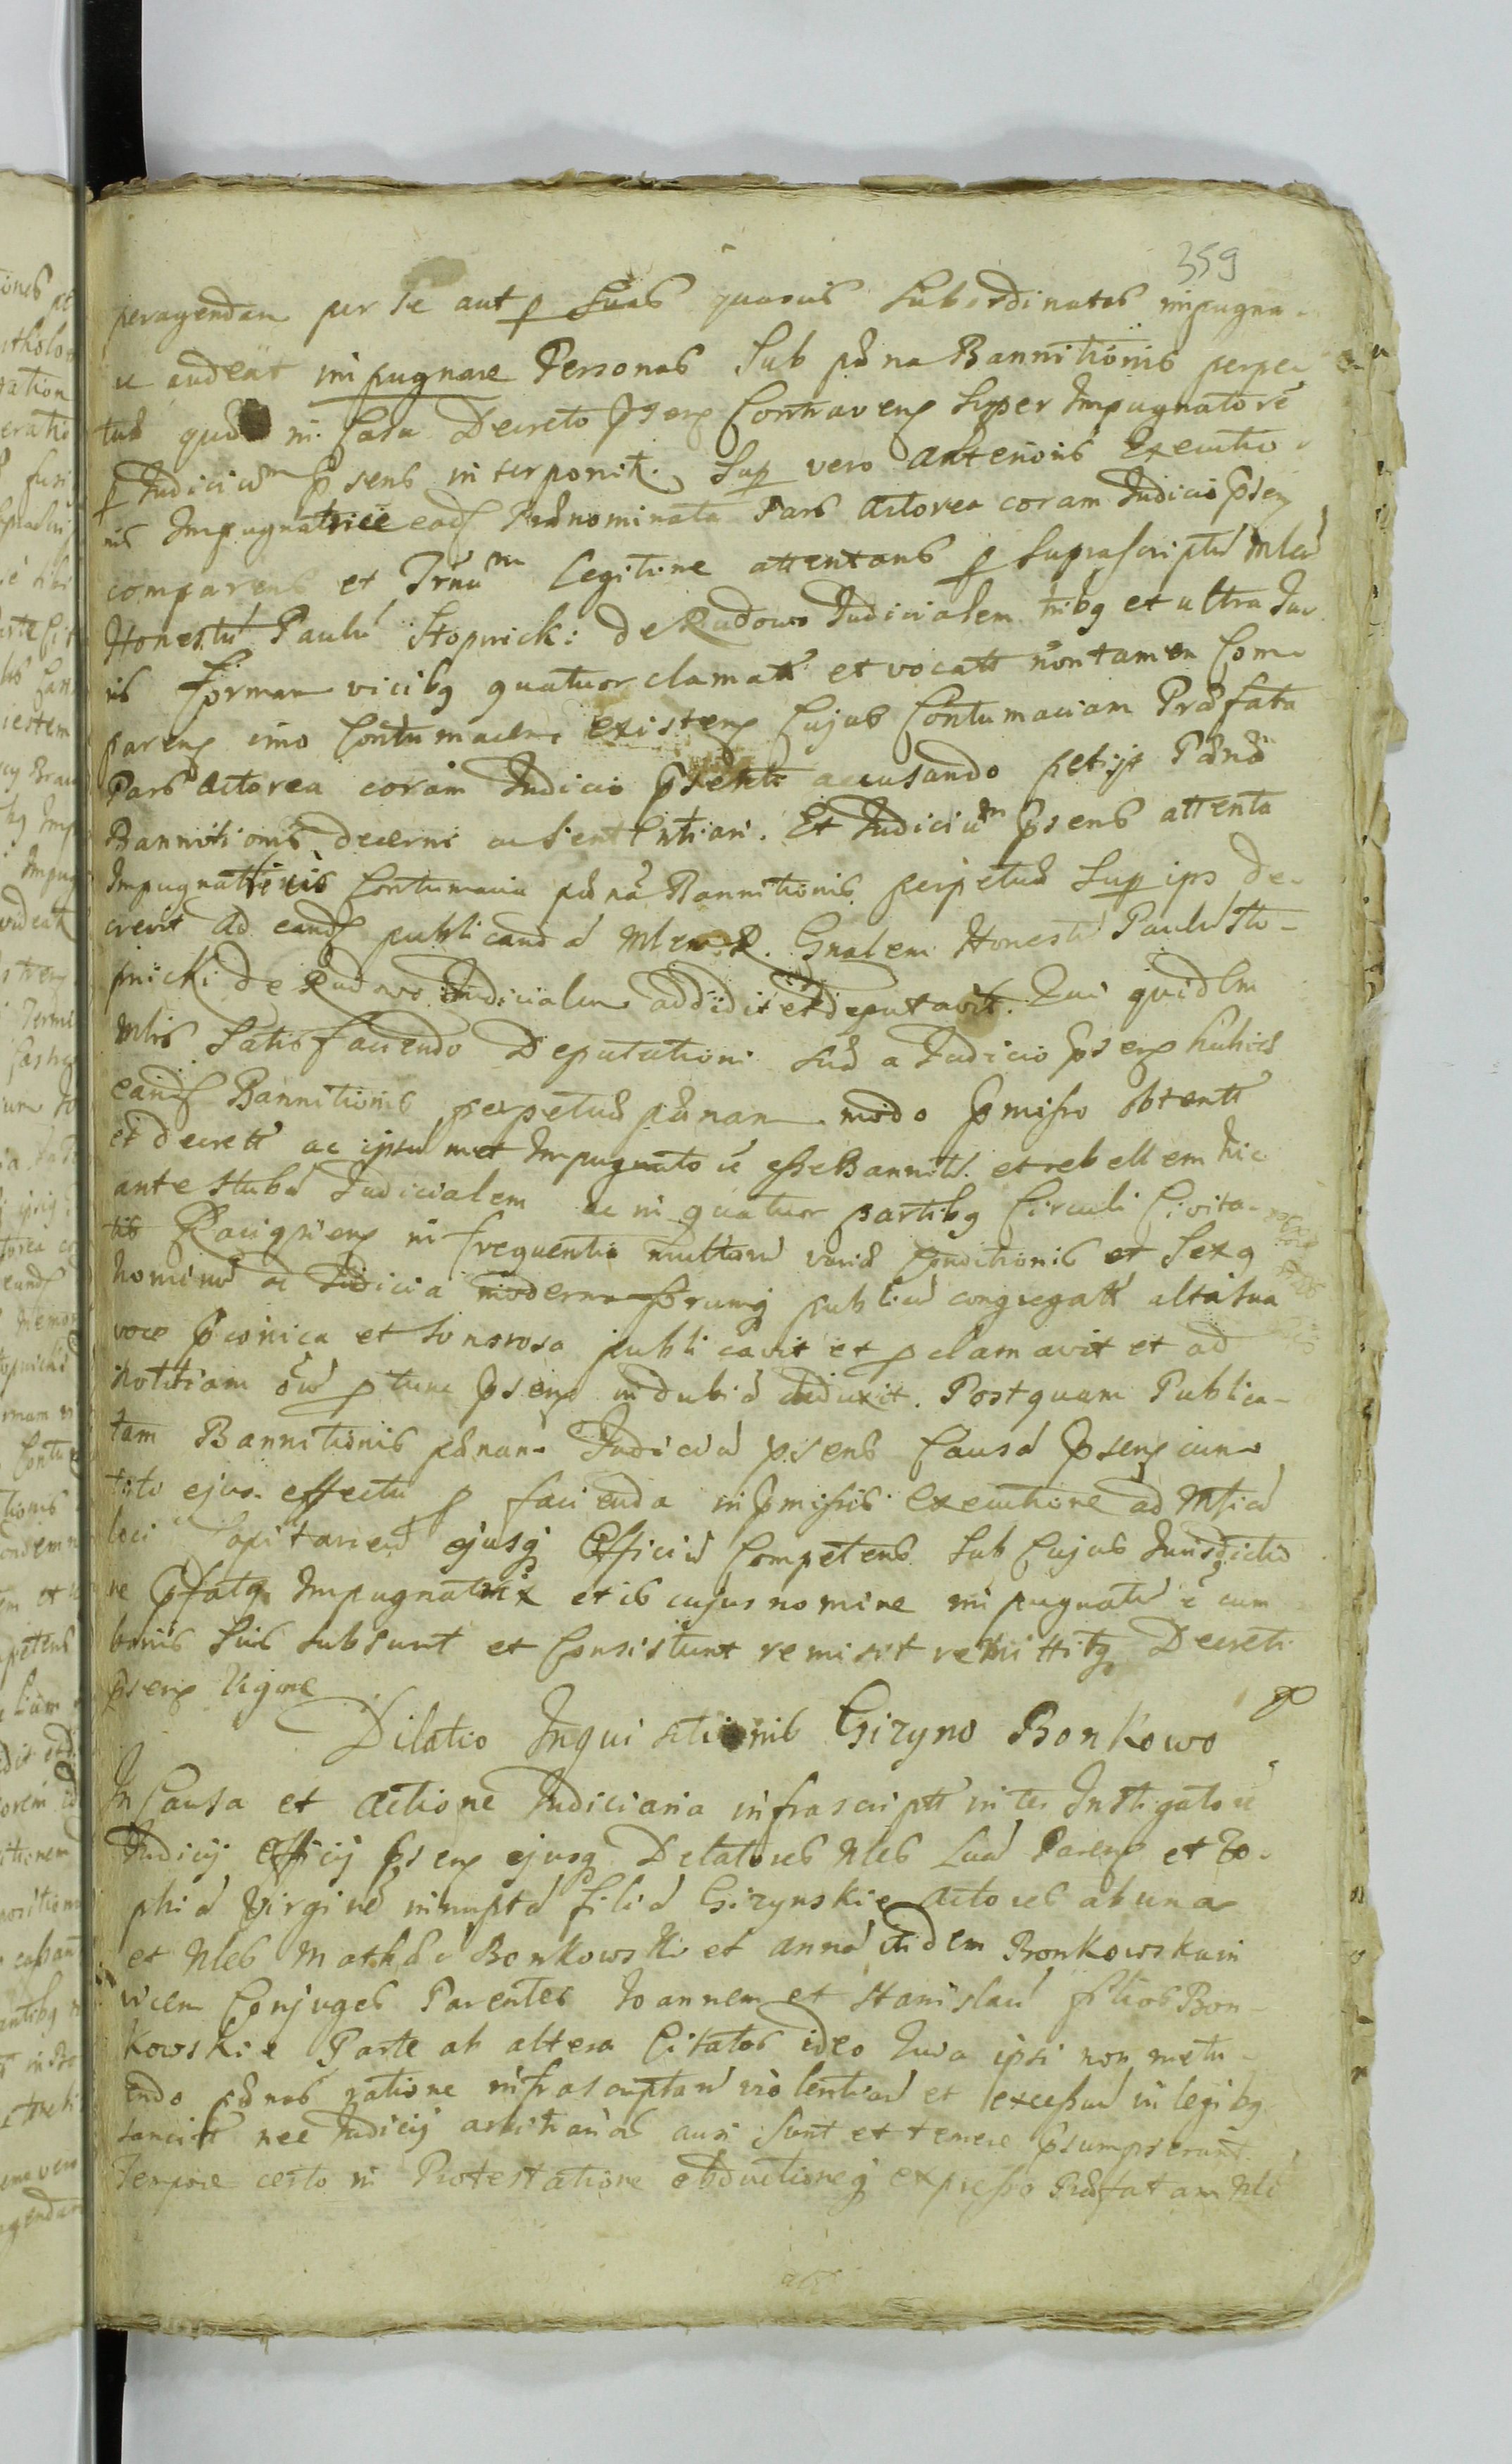 359
peragendam per se aut p suas quasvis subordinatas impugna-
re audeat impugnare Personas sub pœna Bannitionis perpe-
tuæ quã in Casu Decreto pseng Contraveng super Impugnatorē
p Judiciũm psens interponit. Sup vero anterioris Executio-
nis Impugnatrice eadꝭ Prænominata Pars Actorea coram Judicio pseng
comparens et Trnum Legitime attentans p suprascriptũ Mlem
Honestũ Paulũ Stopnicki de Rudowo Judicialem tribꝯ et ultra Ju-
ris formam vicibꝯ quatuor clamatt et vocatt non tamen Com-
pareng imo Contumacem existeng Cujus Contumaciam Præfata
Pars Actorea coram Judicio psenti accusando petijt Pœnã
Bannitionis decerni ac sententiari. Et Judiciũm psens attenta
Impugnatricis Contumacia pœnã Bannitionis perpetuæ sup ips de-
crevit Ad eandꝭ publicandã Mlem R. Gnalem Honestũ Paulũ Sto-
pnicki de Rudowo Judicialem addidit et deputavit. Qui quidem
Mlis satisfaciendo Deputationi suæ a Judicio pseng
eandꝭ Bannitionis perpetuæ pœnam modo pmisso obtentt
et decrett ac ipsũmet Impugnatorē esse Bannitũ et rebellem hic
ante stubã Judicialem ac in quatuor partibꝯ Circuli Civita-
tis Raciqsieng in frequentia multorũ variæ Conditionis et Sexꝯ
hominũ ad Judicia moderna forumq publicũ congregatt alta sua
voce pconica et sonorosa publicavit et pclamavit et ad
notitiam õiũ ptunc pseng indubiã deduxit. Postquam Publica-
tam Bannitionis pœnam Judiciũ psens Causã pseng cum
toto ejus effectu p facienda in pmissis executione ad Mticũ
loci Capitaneũ ejusq Officiũ Competens sub Cujus Jurisdictio-
ne pfatꝯ Impugnatrix et is cujus nomine impugnatũ ē cum
bonis suis subsunt et Consistunt remisit remittitꝯ Decreti
pseng vigore
Dilatio Inquisitionis Gizyno Bonkowo
In Causa et Actione Judiciaria infrascriptt inter Instigatorē
Judicij Officij pseng ejusq Delatores Nles Pareng et Zo-
phiã Virginē innuptã filiã Gizynskie Actores ab una
et Nles Mathæũ Bonkowski et Annã itidem Bonkowska in
vicem Conjuges Parentes Joannem et Stanislaũ filios Bon-
kowskie Parte ab altera Citatos ideo Quia ipsi non metu-
endo pœnas ratione infrascriptarũ violentiarũ et excessuũ in legibꝯ
sancitt nec Judicij arbitrarias ausi sunt et temere psumpserunt
tempore certo in Protestatione obductioneq expresso Præfatam Nle